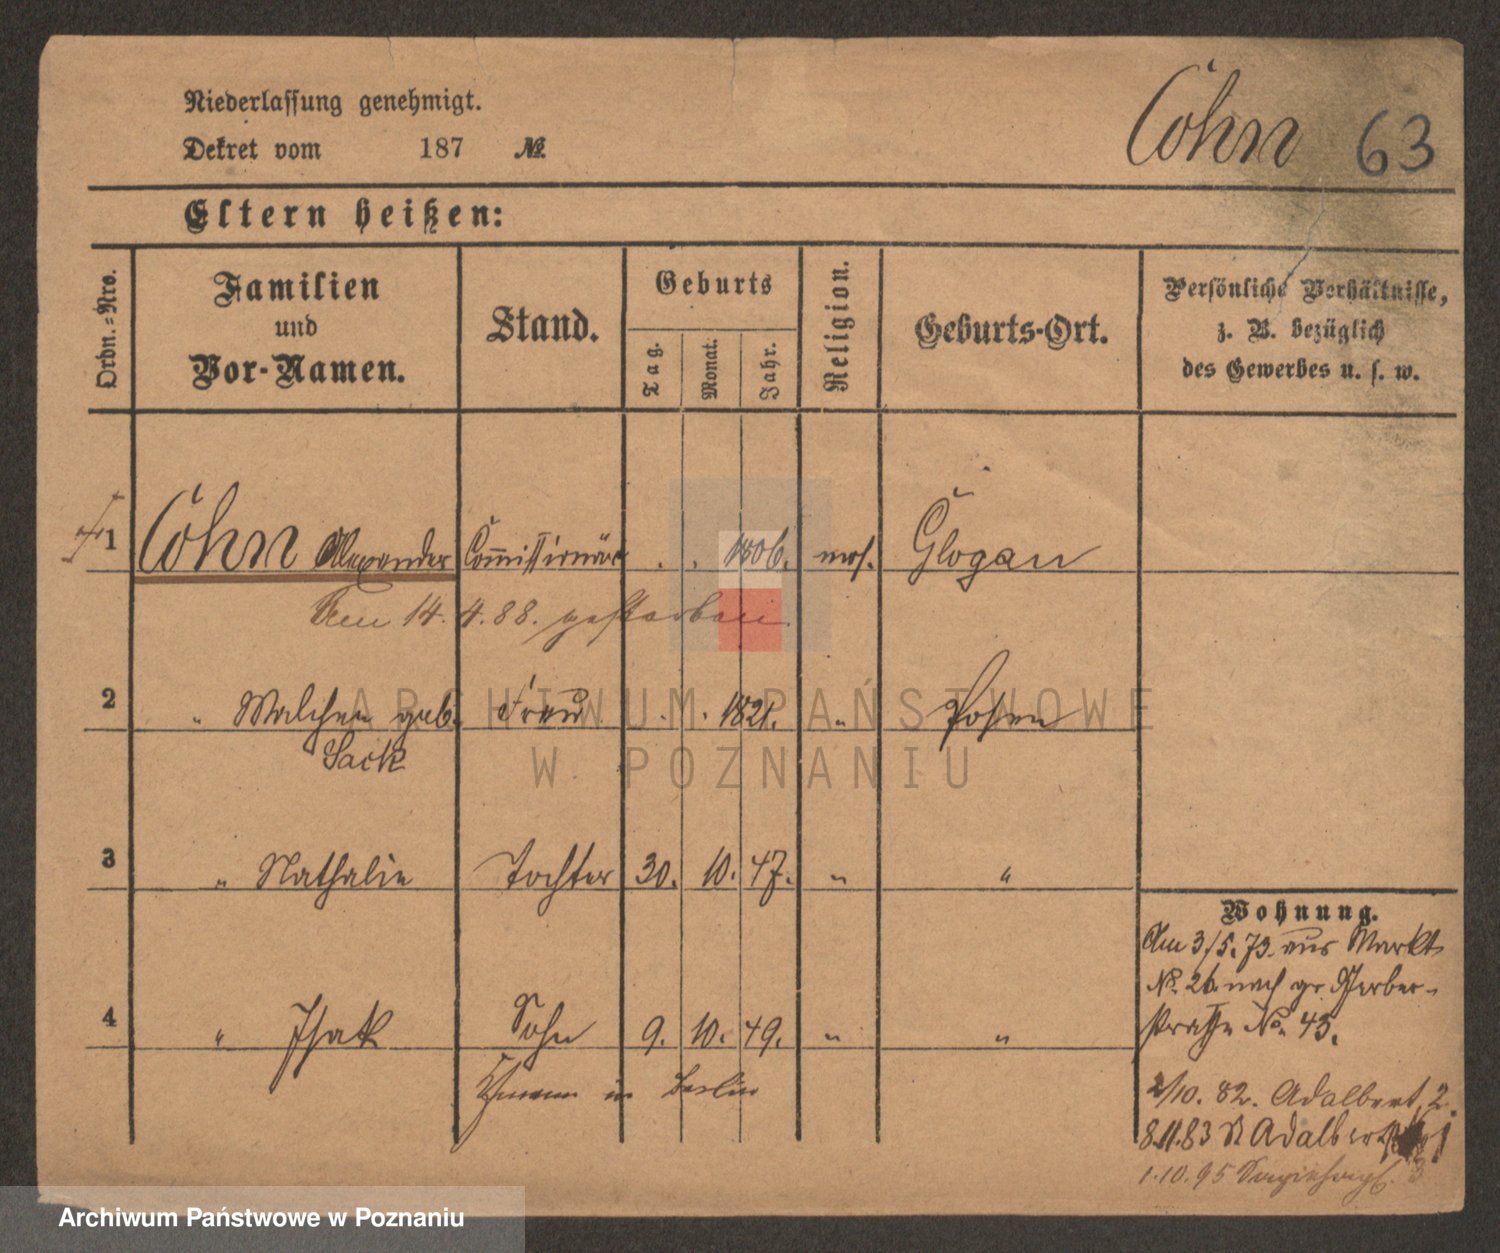 Niederlassung genehmigt.
Dekret vom 187 №
Cohn 63
Eltern heißen:
Ordn.-Nro.
Familien
und
Vor-Namen.
Stand.
Geburts
Tag.
Monat.
Jahr.
Religion.
Geburts-Ort.
Persönliche Verhältnisse,
z. B. bezüglich
des Gewerbes u. s. w.
1 Cohn Alexander Commissionär . . 1806. mos. Glogau
Am 14. 4. 88. gestorben
2 " Malchen geb. Frau . . 1821. " Posen
Sack
3 " Nathalie Tochter 30. 10. 47. " "
4 " Isak Sohn 9. 10. 49. " "
in Berlin
Wohnung.
Am 3/5. 73. aus Markt
No. 26 nach gr. Gerber-
straße No. 43.
2/10. 82. Adalbert 2.
8.11.83 St Adalbert 1
1.10.95
ARCHIWUM PAŃSTWOWE
W POZNANIU
Archiwum Państwowe w Poznaniu